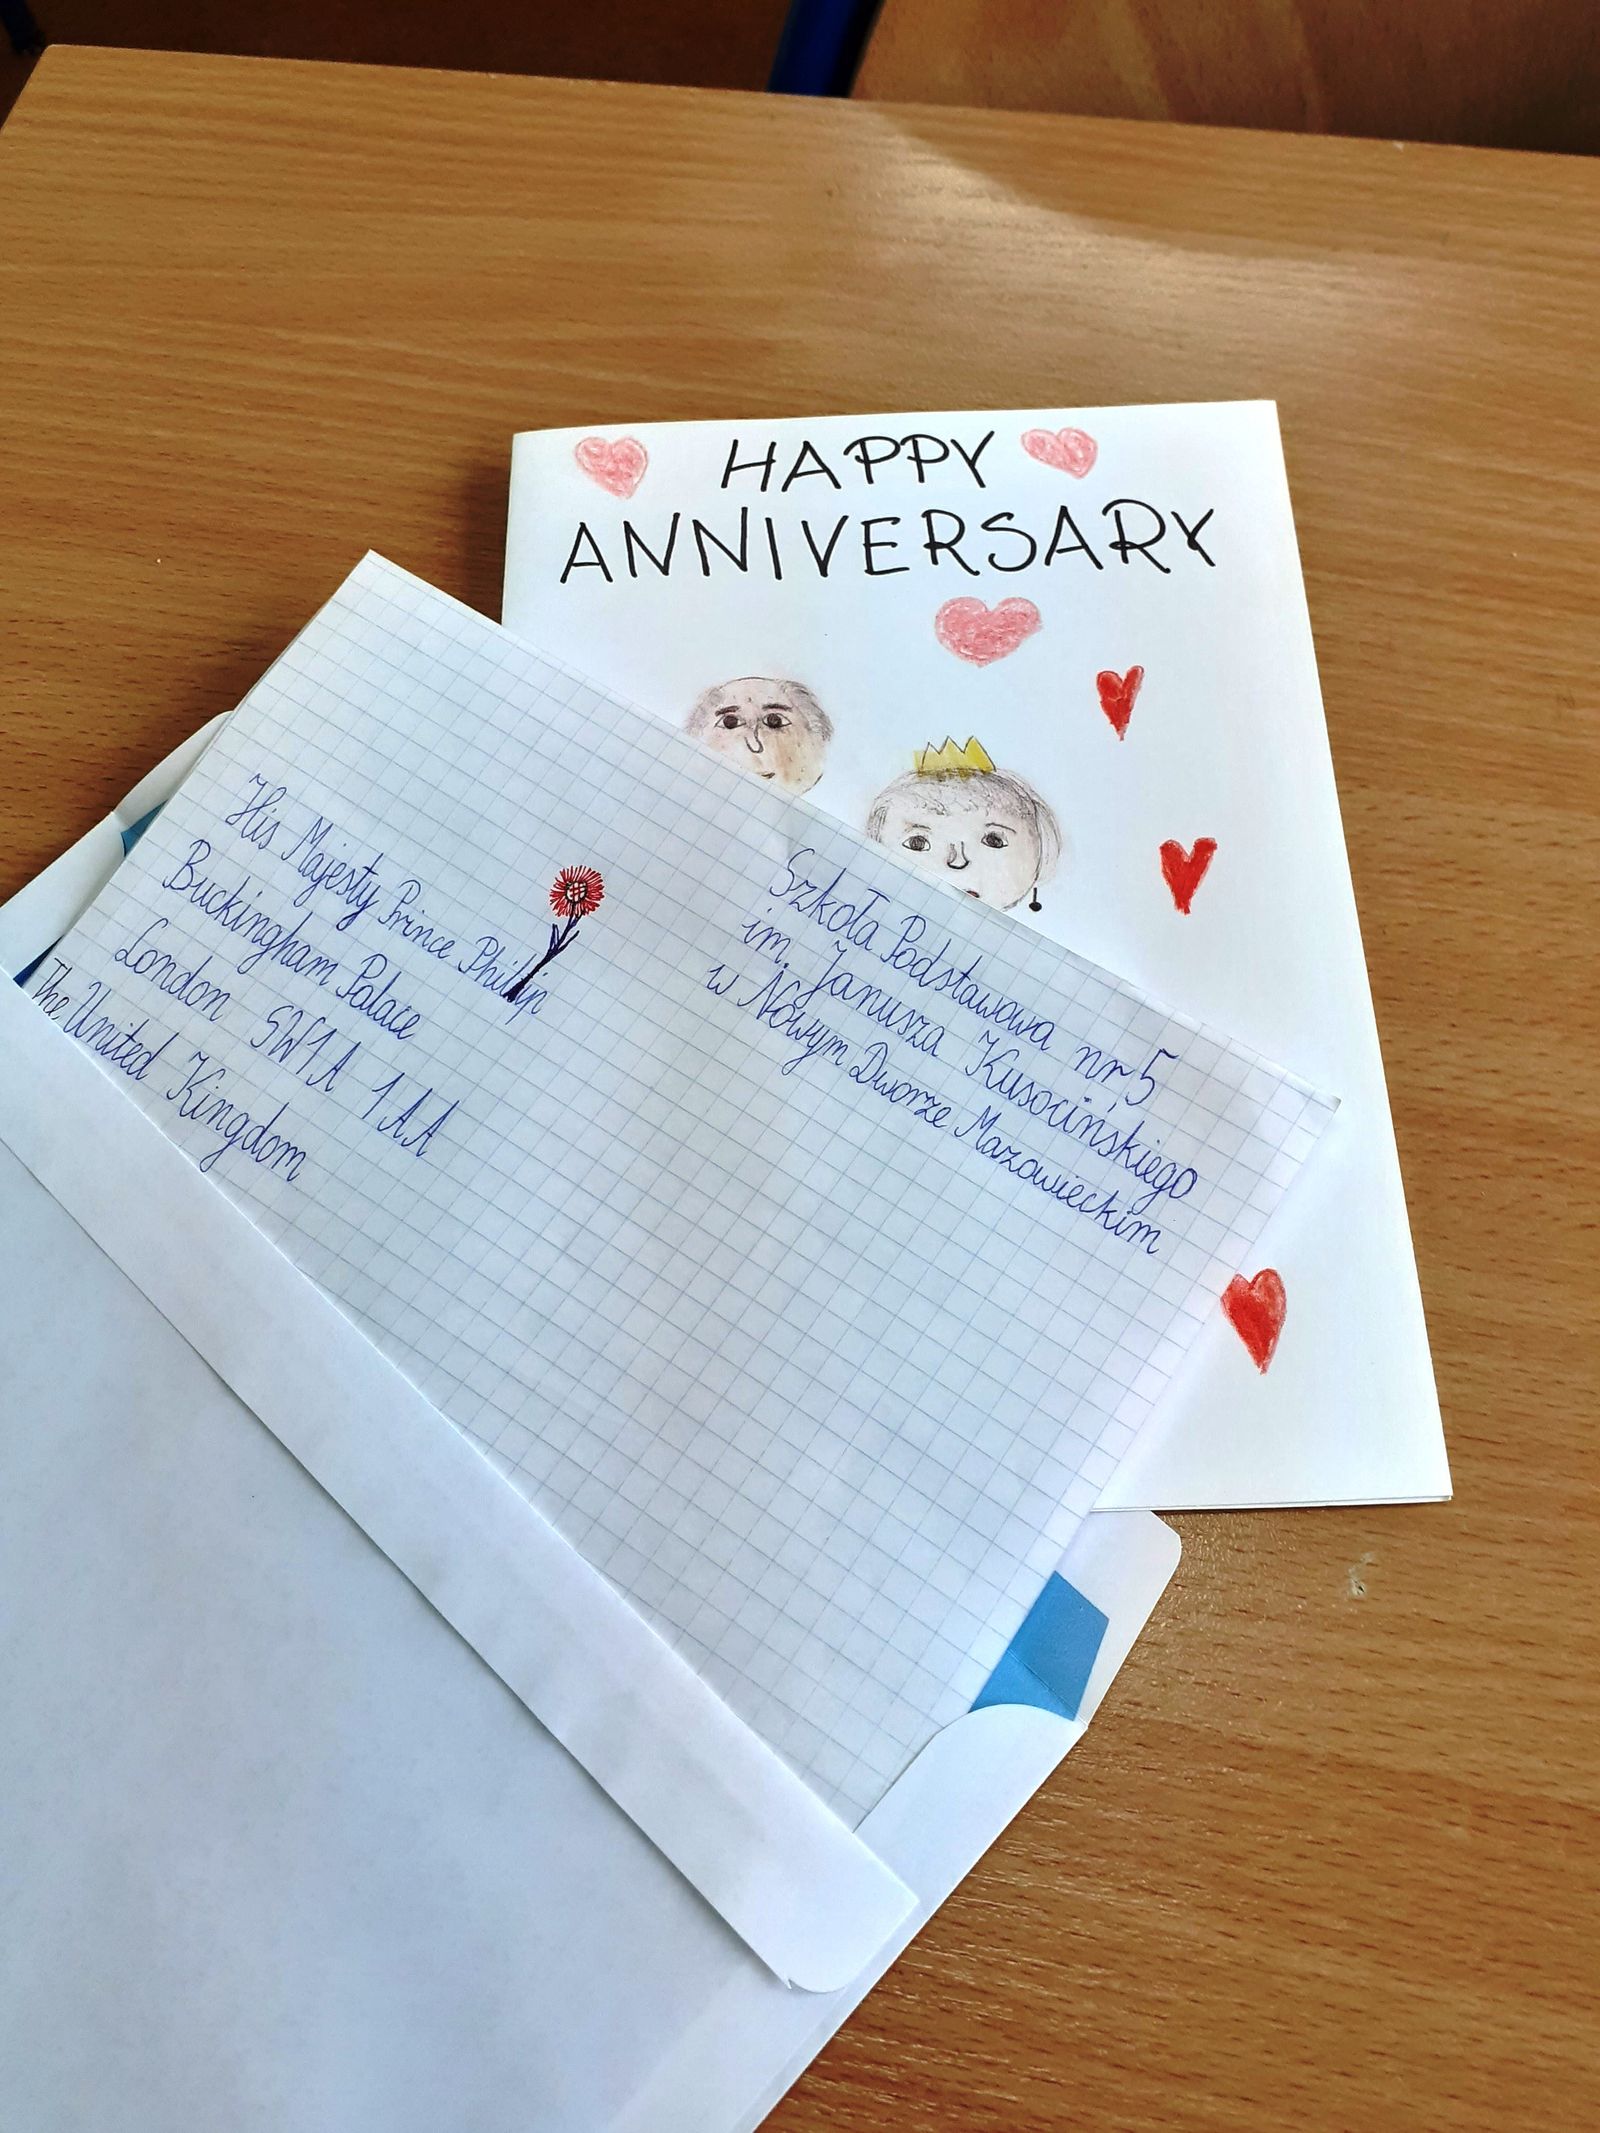 HAPPY
ANNIVERSARY
His Majesty Prince Phillip
Buckingham Palace
London SW1A 1AA
The United Kingdom
Szkoła Podstawowa nr 5
im. Janusza Kusocińskiego
w Nowym Dworze Mazowieckim